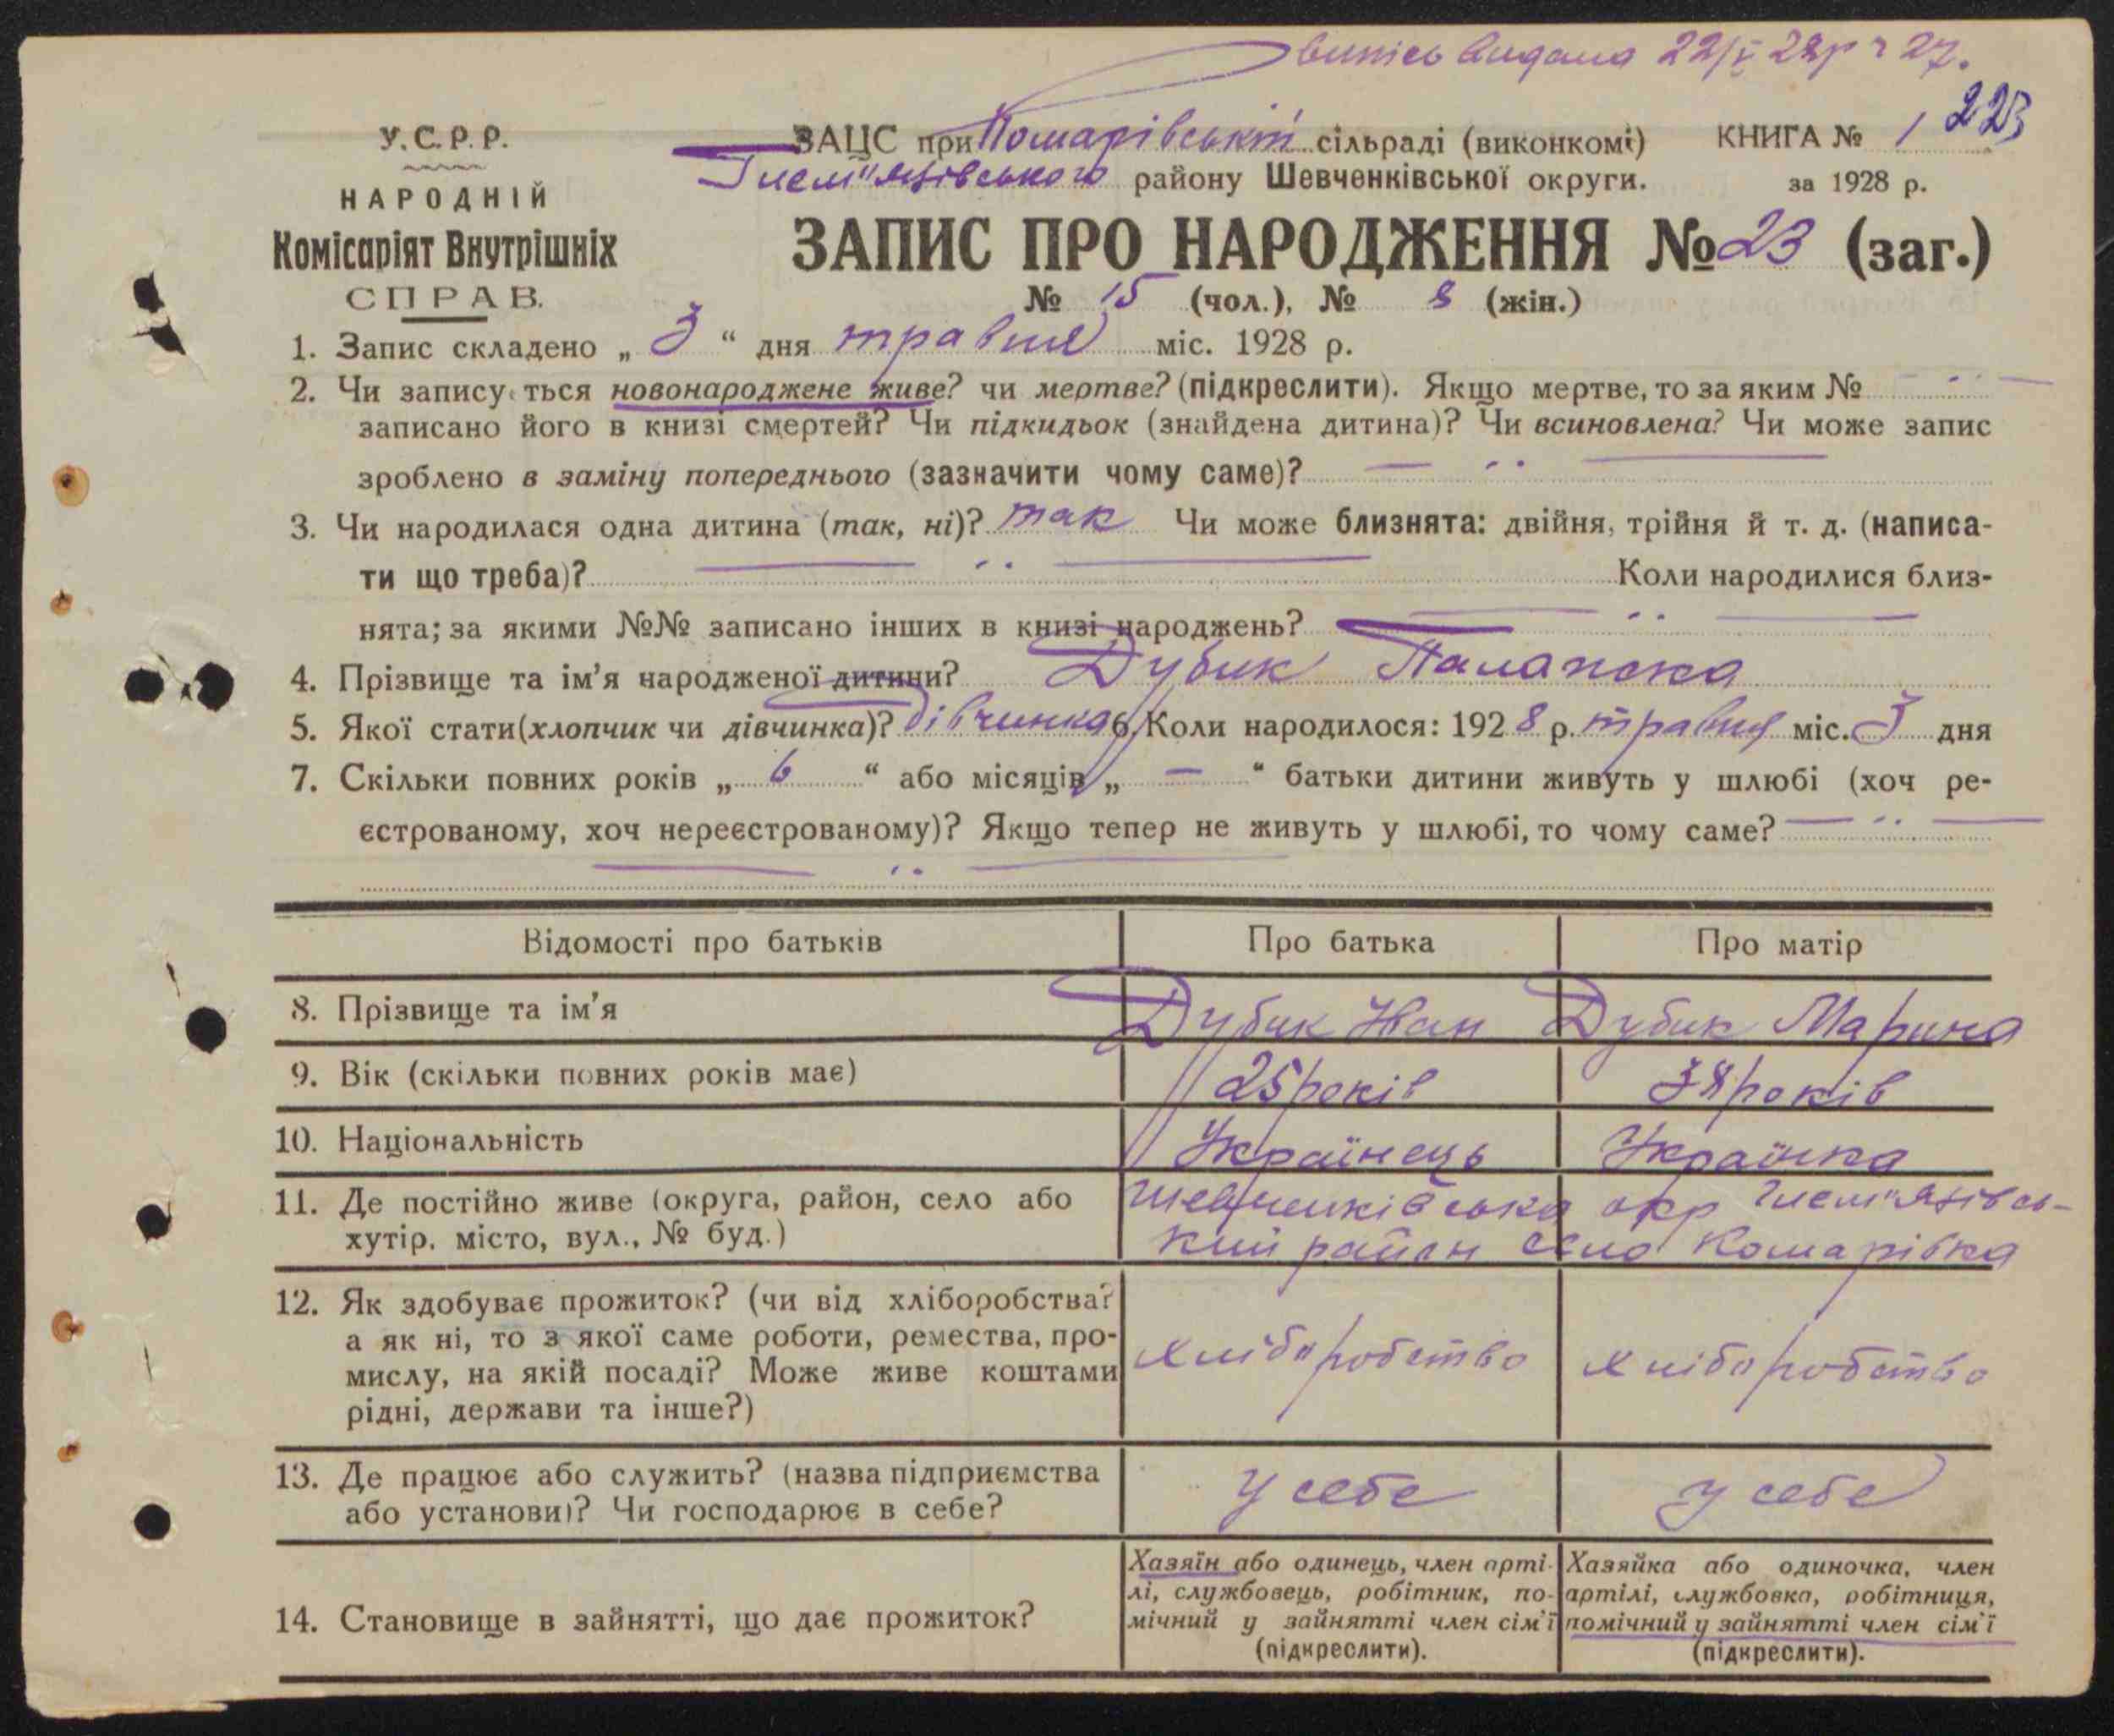 випісь видана 22/V 28р ч 27.
У.С.Р.Р.
НАРОДНІЙ
Комісаріят Внутрішніх
СПРАВ.
ЗАЦС при Комарівській сільраді (виконкомі)
Гнем"язівського району Шевченківської округи.
КНИГА № 1 223
за 1928 р.
ЗАПИС ПРО НАРОДЖЕННЯ № 23 (заг.)
№ 15 (чол.), № 8 (жін.)
1. Запис складено „ 3 “ дня травня міс. 1928 р.
2. Чи записується новонароджене живе? чи мертве? (підкреслити). Якщо мертве, то за яким №
записано його в книзі смертей? Чи підкидьок (знайдена дитина)? Чи всиновлена? Чи може запис
зроблено в заміну попереднього (зазначити чому саме)?
3. Чи народилася одна дитина (так, ні)? так Чи може близнята: двійня, трійня й т. д. (написа-
ти що треба)? Коли народилися близ-
нята; за якими №№ записано інших в книзі народжень?
4. Прізвище та ім'я народженої дитини? Дубик Палажка
5. Якої стати (хлопчик чи дівчинка)? дівчинка 6. Коли народилося: 1928 р. травня міс. 3 дня
7. Скільки повних років „ 6 “ або місяців „ — “ батьки дитини живуть у шлюбі (хоч ре-
єстрованому, хоч нереєстрованому)? Якщо тепер не живуть у шлюбі, то чому саме?
Відомості про батьків Про батька Про матір
8. Прізвище та ім'я Дубик Іван Дубик Марина
9. Вік (скільки повних років має) 25 років 38 років
10. Національність Українець Українка
11. Де постійно живе (округа, район, село або
хутір, місто, вул., № буд.)
Шевченківська окр Гнем"язівсь-
кий район село Комарівка
12. Як здобуває прожиток? (чи від хліборобства?
а як ні, то з якої саме роботи, ремества, про-
мислу, на якій посаді? Може живе коштами
рідні, держави та інше?)
хліборобство хліборобство
13. Де працює або служить? (назва підприємства
або установи)? Чи господарює в себе?
у себе у себе
14. Становище в зайнятті, що дає прожиток?
Хазяїн або одинець, член арті-
лі, службовець, робітник, по-
мічний у зайнятті член сім'ї
(підкреслити).
Хазяйка або одиночка, член
артілі, службовка, робітниця,
помічний у зайнятті член сім'ї
(підкреслити).